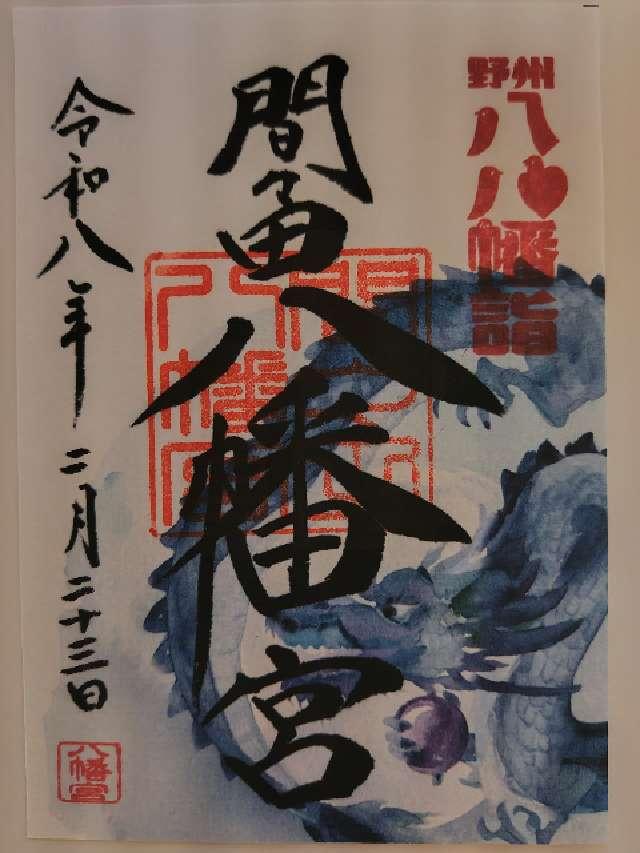 野州
八八幡詣
間々田八幡宮
令和八年二月二十三日
八幡宮